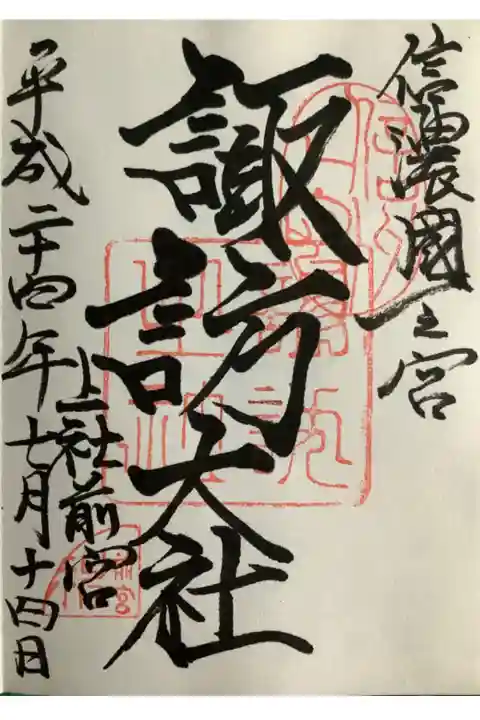 信濃國一之宮
諏訪大社
上社前宮
平成二十四年七月十四日